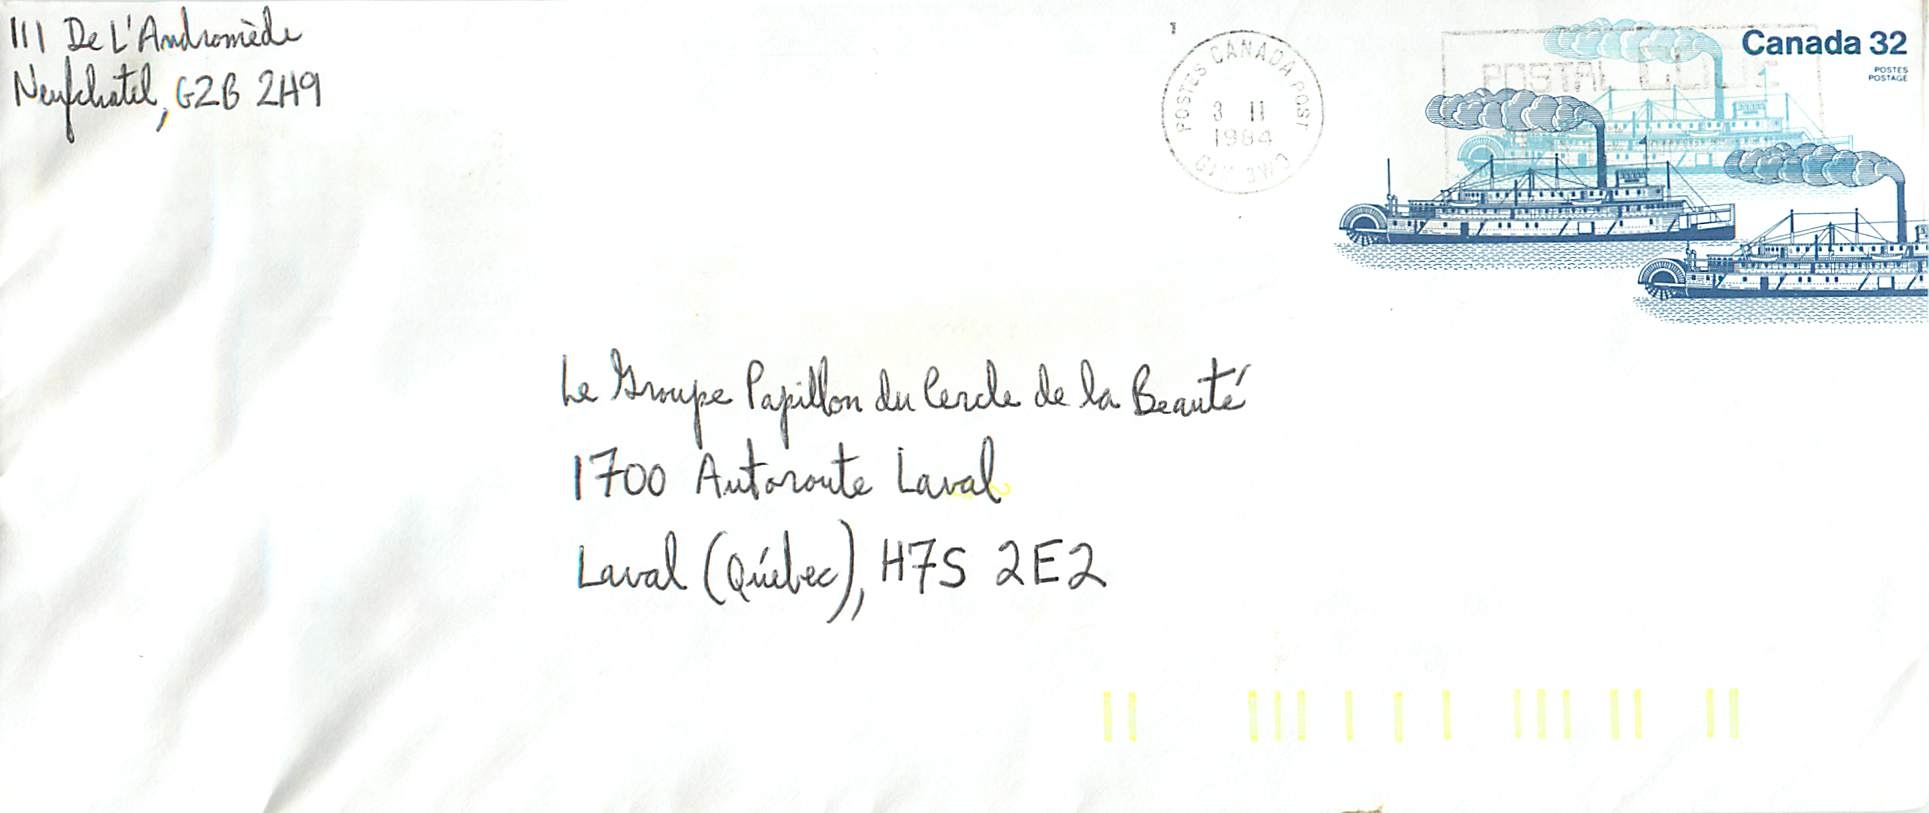 111 De L'Andromède
Neufchatel, G2B 2H9
POSTES CANADA POST
3 II
1984
POSTAL CODE
Canada 32
POSTES
POSTAGE
Le Groupe Papillon du Cercle de la Beauté
1700 Autoroute Laval
Laval (Québec), H7S 2E2